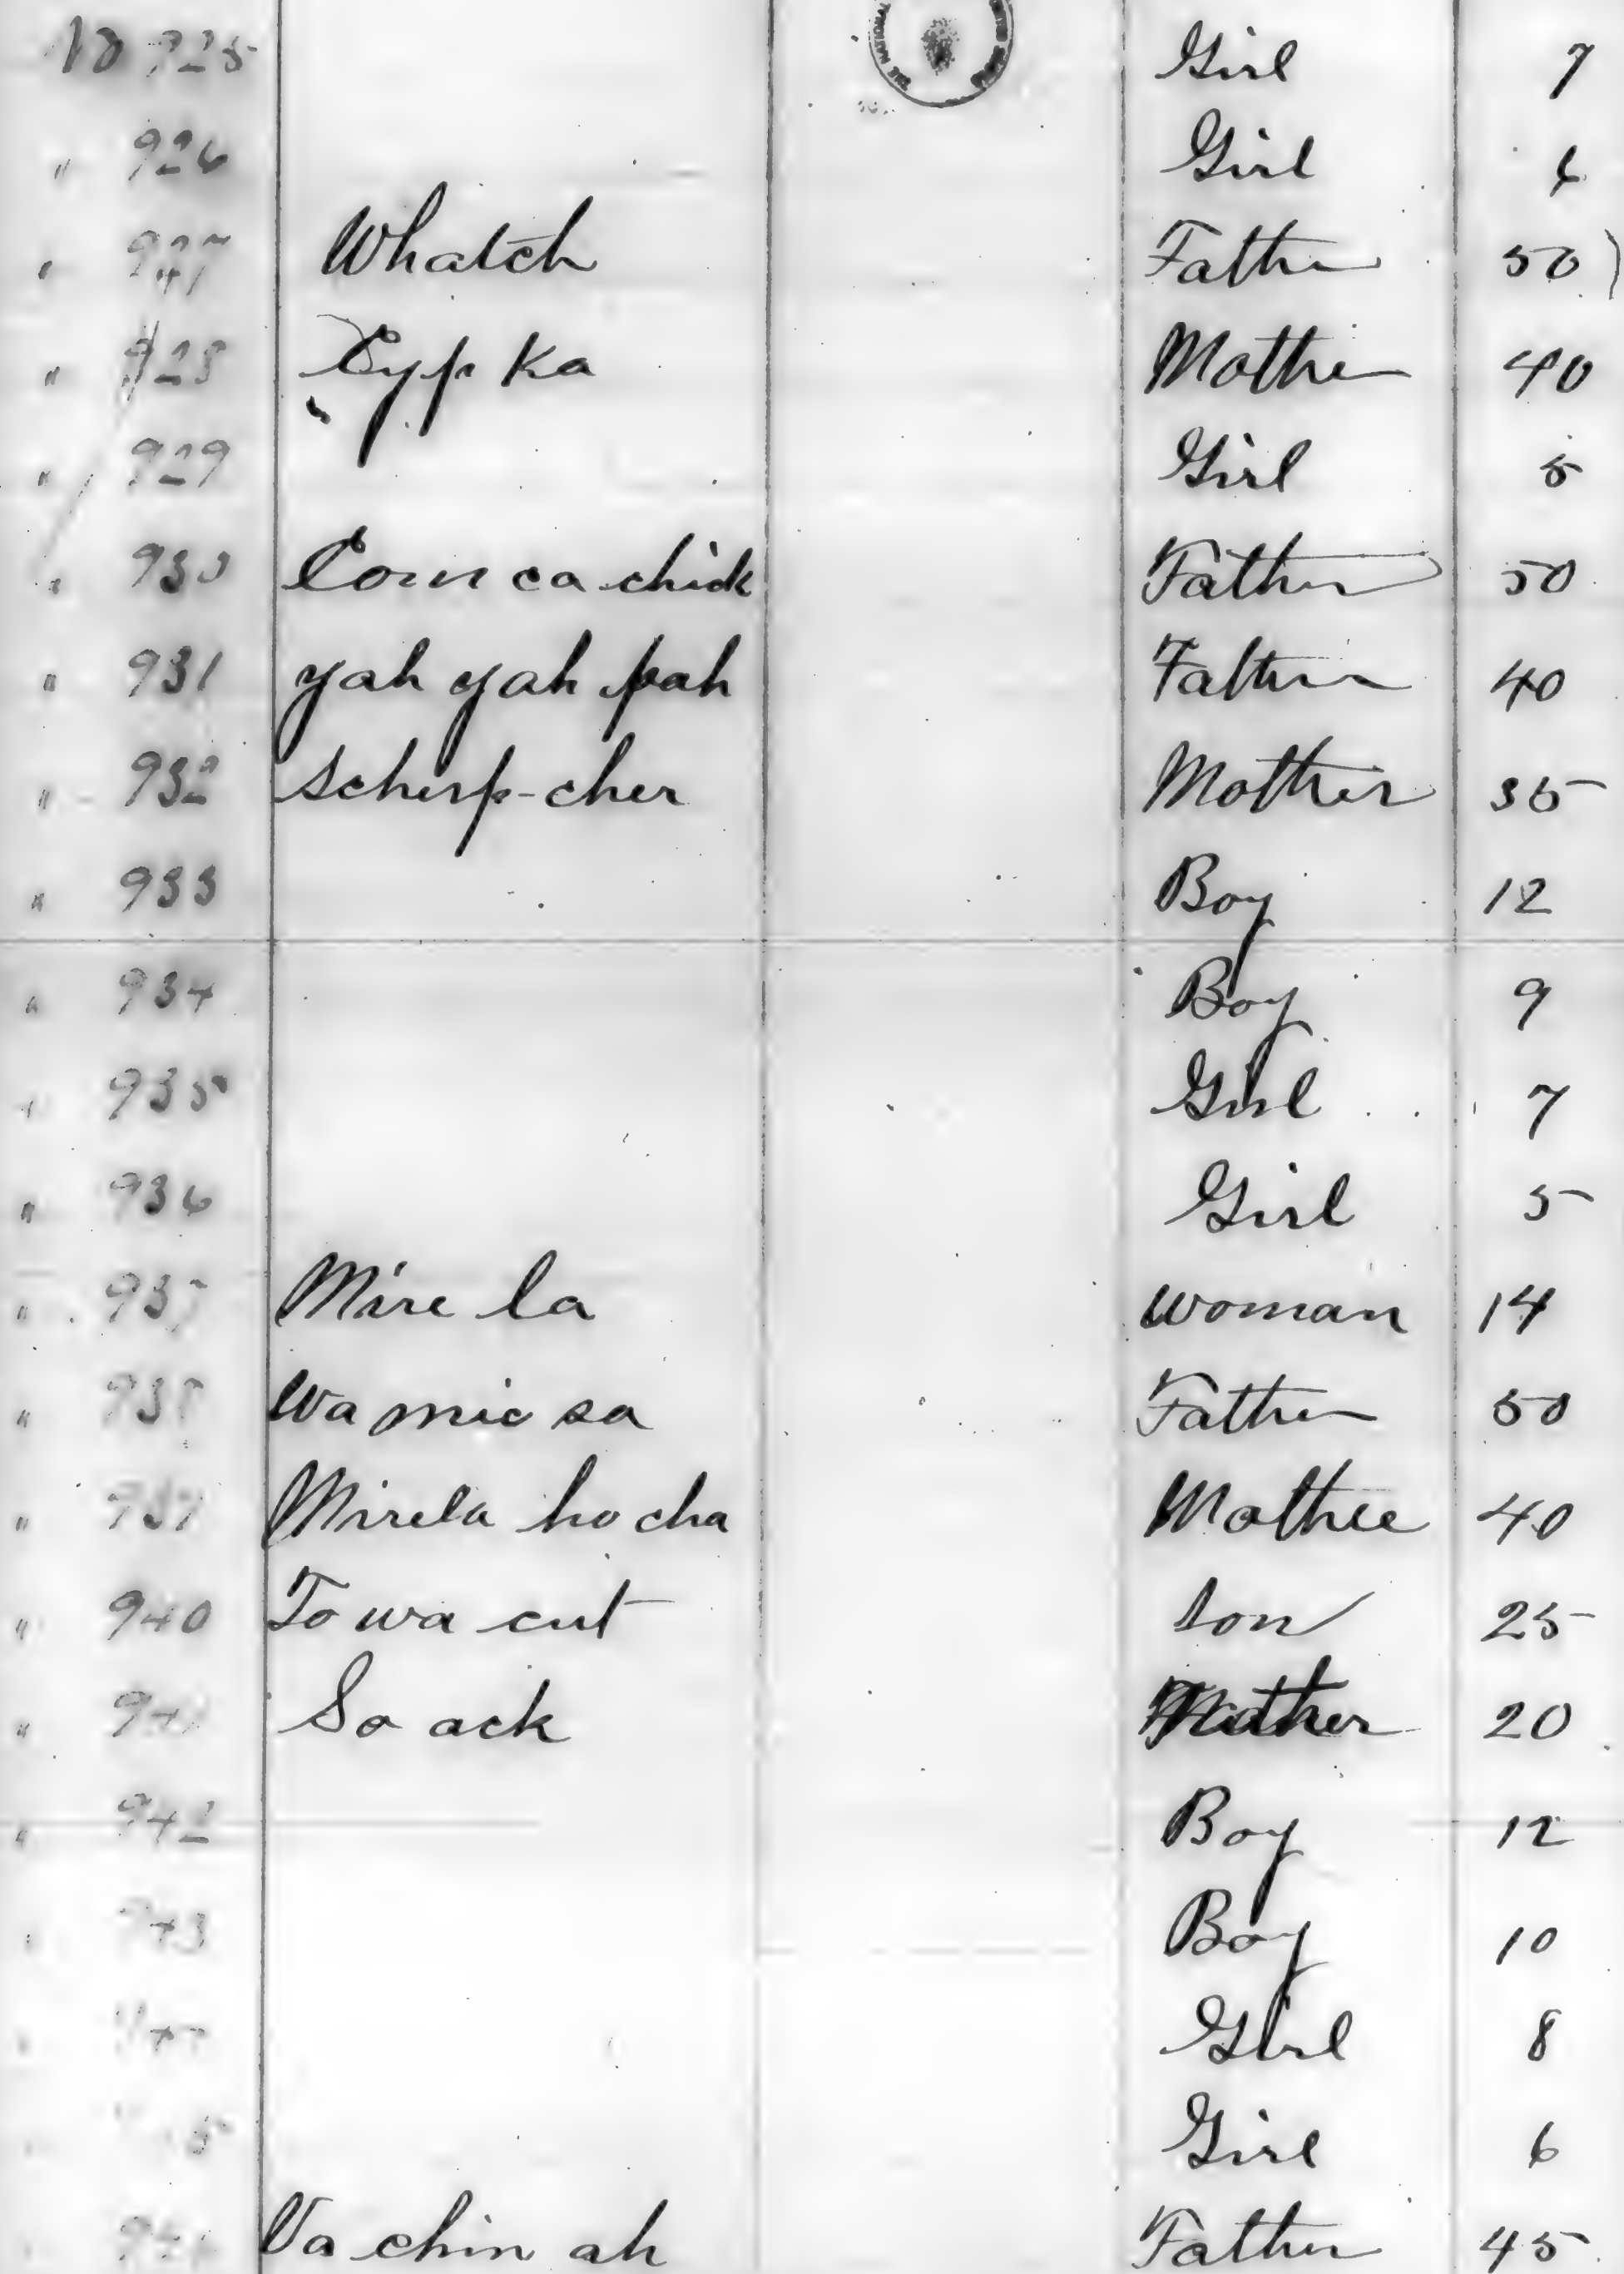 No 925 Girl 7
" 926 Girl 6
" 927 Whatch Father 50)
" 928 Eyp Ka Mother 40
" 929 Girl 5
" 930 Corn ca chick Father 50
" 931 yah yah pah Father 40
" 932 Scherp-cher Mother 35
" 933 Boy 12
" 934 Boy 9
" 935 Girl 7
" 936 Girl 5
" 937 Mire la woman 14
" 938 Wa mic sa Father 50
" 939 Mirela ho cha Mother 40
" 940 To wa cut son 25
" 941 So ack Mother 20
" 942 Boy 12
" 943 Boy 10
Girl 8
Girl 6
Va chin ah Father 45